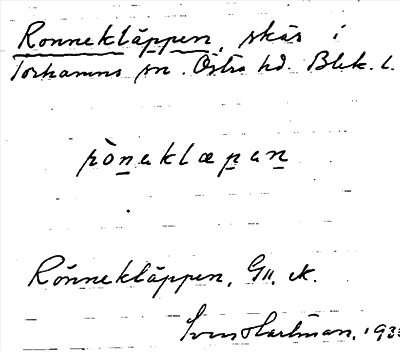 Ronnekläppen, skär i
Torhamns sn. Östra hd. Blek. l.
ròneklæpen
Rönnekläppen, GII. ek.
Sven Hartman, 193